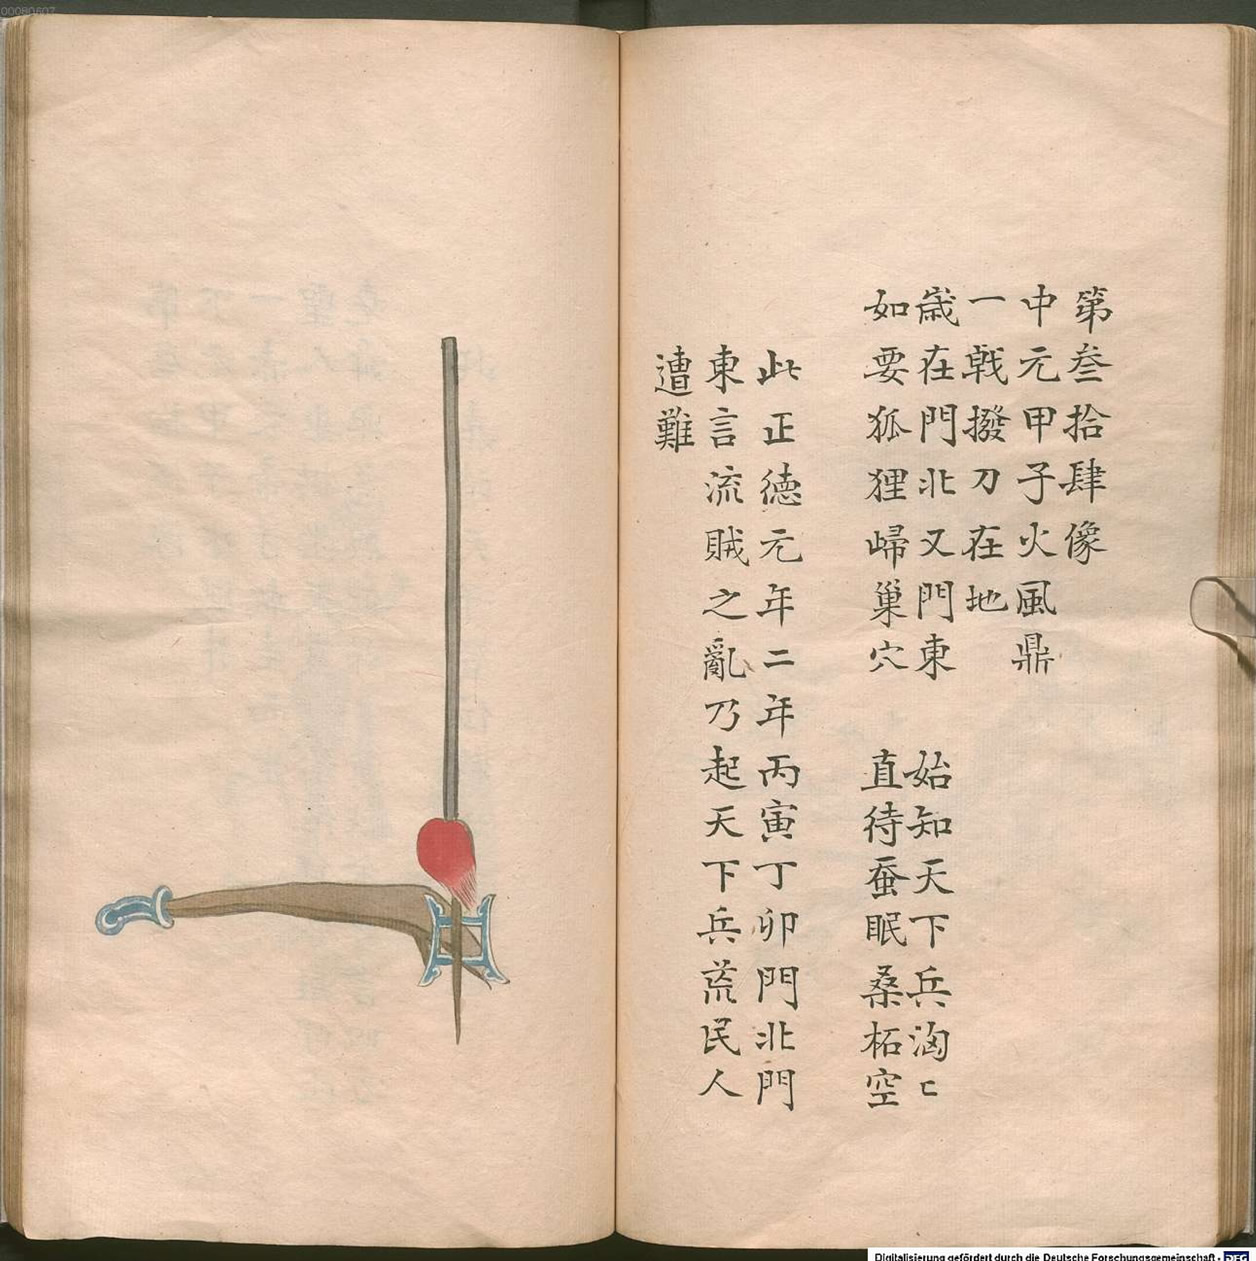 第叁拾肆像
中元甲子火風鼎
一戟撥刀在地
歳在門北又門東 始知天下兵汹〻
如要狐狸歸巢穴 直待蚕眠桑柘空
此正德元年二年丙寅丁卯門北門
東言流賊之亂乃起天下兵荒民人
遭難
00080607
Digitalisierung gefördert durch die Deutsche Forschungsgemeinschaft - DFG